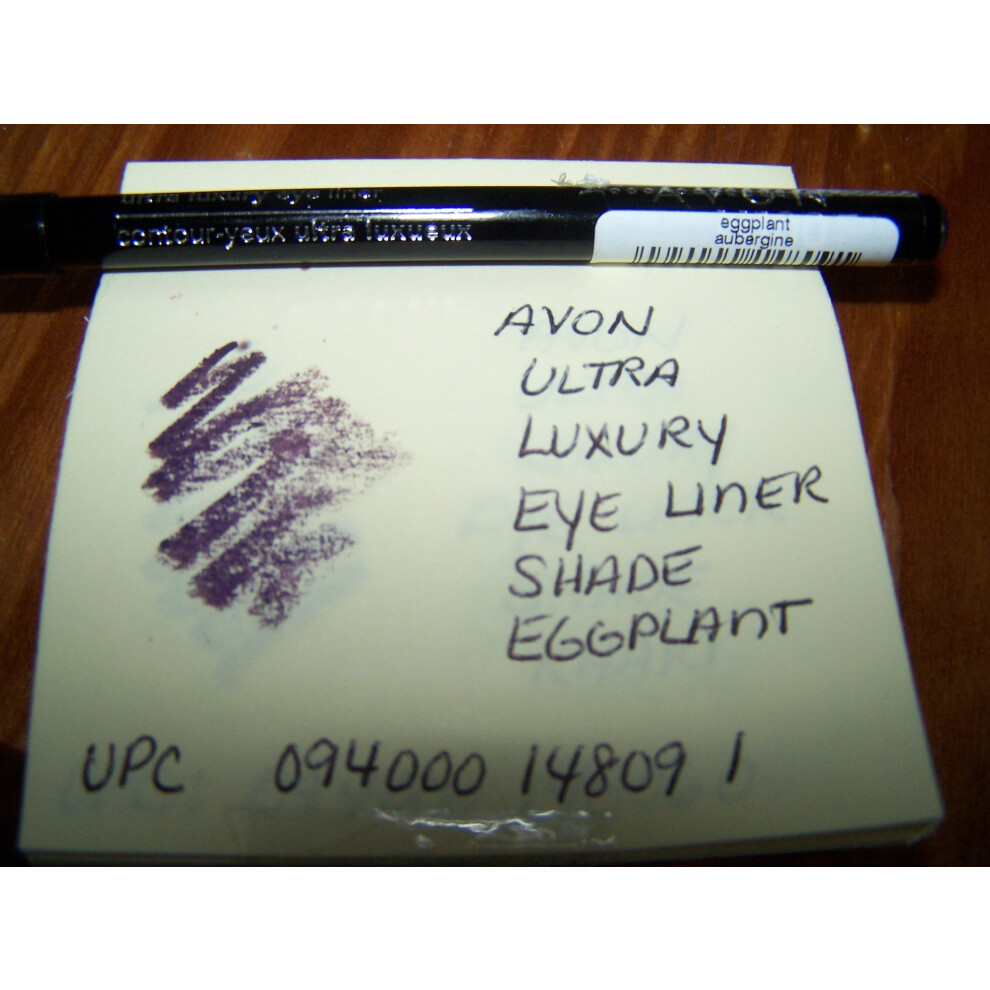 ultra luxury eye liner
AVON
contour-yeux ultra luxueux
eggplant
aubergine
AVON
ULTRA
LUXURY
EYE LINER
SHADE
EGGPLANT
UPC 094000 14809 1